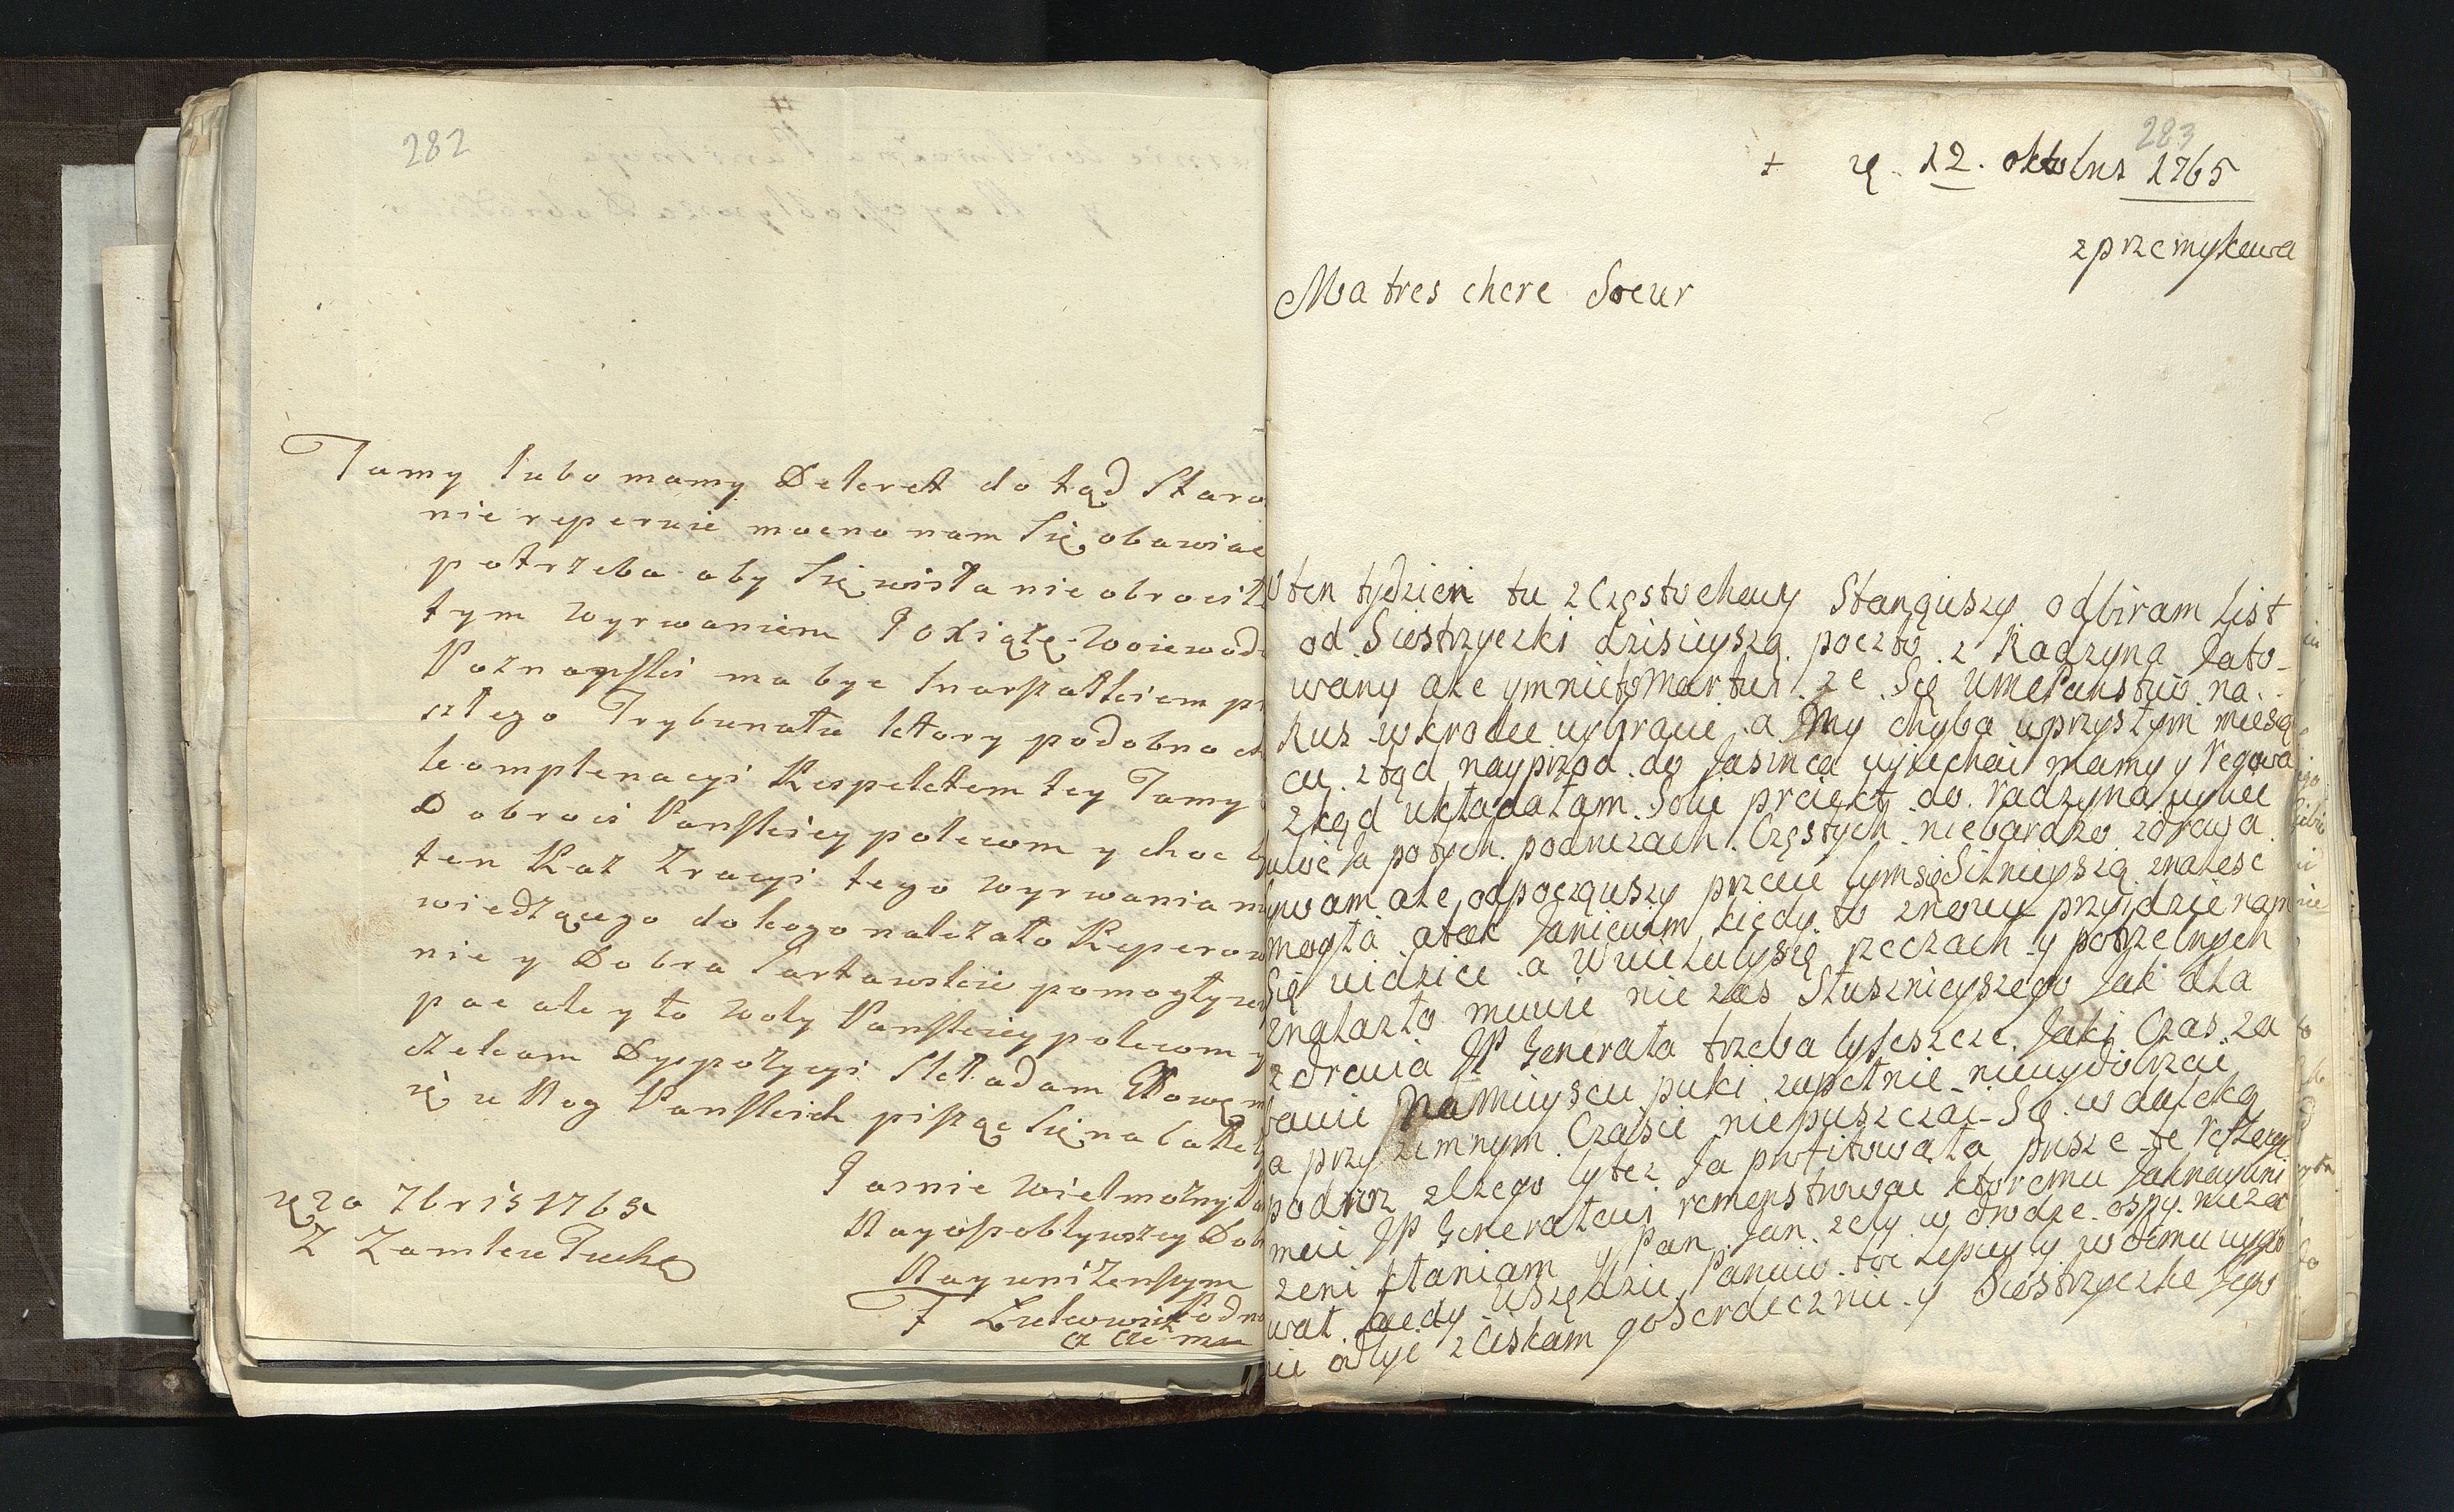 282
Tamy lubo mamy Dekret do tąd Staro
nie reperuie mocno nam Się obawiać
potrzeba aby Się wisła nie obrocił
tym wyrwaniem JOXiąże Woiewod
Poznański ma byc Marszałkiem pr
szłego Trybunału ktory podobno
komplenacyi Respektem tey Tamy
Dobroci Pańskiey polecam y choc
ten Raz Zracyi tego wyrwania
wiedzącego do kogo należało Reperow
nie y Dobra Sartawskie pomogły
pac ale y to woly Pańskiey polecam y
czekam Dyspozycyi Składam Głowę
u Nog Pańskich pisząc Się na całe
Jasnie Wielmozny
Nayosobliwszy Dob
Nayunizenszym
20 7bris 1765
Z Zamku Tuche
283
+ 12. oktobris 1765
z przemykowa
Ma tres chere Soeur
ten tydzien tu z Częstochowy Stanąwszy odbiram list
od Siostrzyczki dzisieyszą pocztą z Radzyna Dato-
wany ale Się Umcpanstwo na
Rus wkrodce wybracie a My chyba w przyszłym miesią
cu ztąd nayprzod do Jasinca wyiechac mamy y Regowa
zkąd układałam Sobie proiekt do radzyna
Ja po tych podruzach Częstych niebardzo zdrowa
bywam ale odpocząwszy przecie bym się Silnieyszą znalesć
mogła atak Janiewiem kiedy to znowu przyidzie nam
Się widziec a Wiele by się rzeczach y potrzebnych
znalazło mowić nie zas Słusznieyszego Jak dla
zdrowia JP Generała trzeba by Jeszcze Jaki Czas za
bawic Na Mieyscu puki zupełnie
a przy zimnym Czasie niepuszczac Się w daleką
podroz zczego bytez Ja profitowała prosze te
mcie JP Generałowi remonstrowac ktoremu Jaknayuni
zeni kłaniam y Pan Jan zeby w drodze ospy nie
wał kiedy wszędzie Panuie toc Lepiey by w domu
odbyc zciskam go Serdecznie y Siostrzyczke Jego